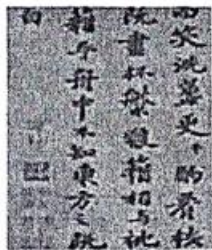 而笑洗盞更酌肴核
既盡杯盤狼籍相與枕
藉乎舟中不知東方之既
白